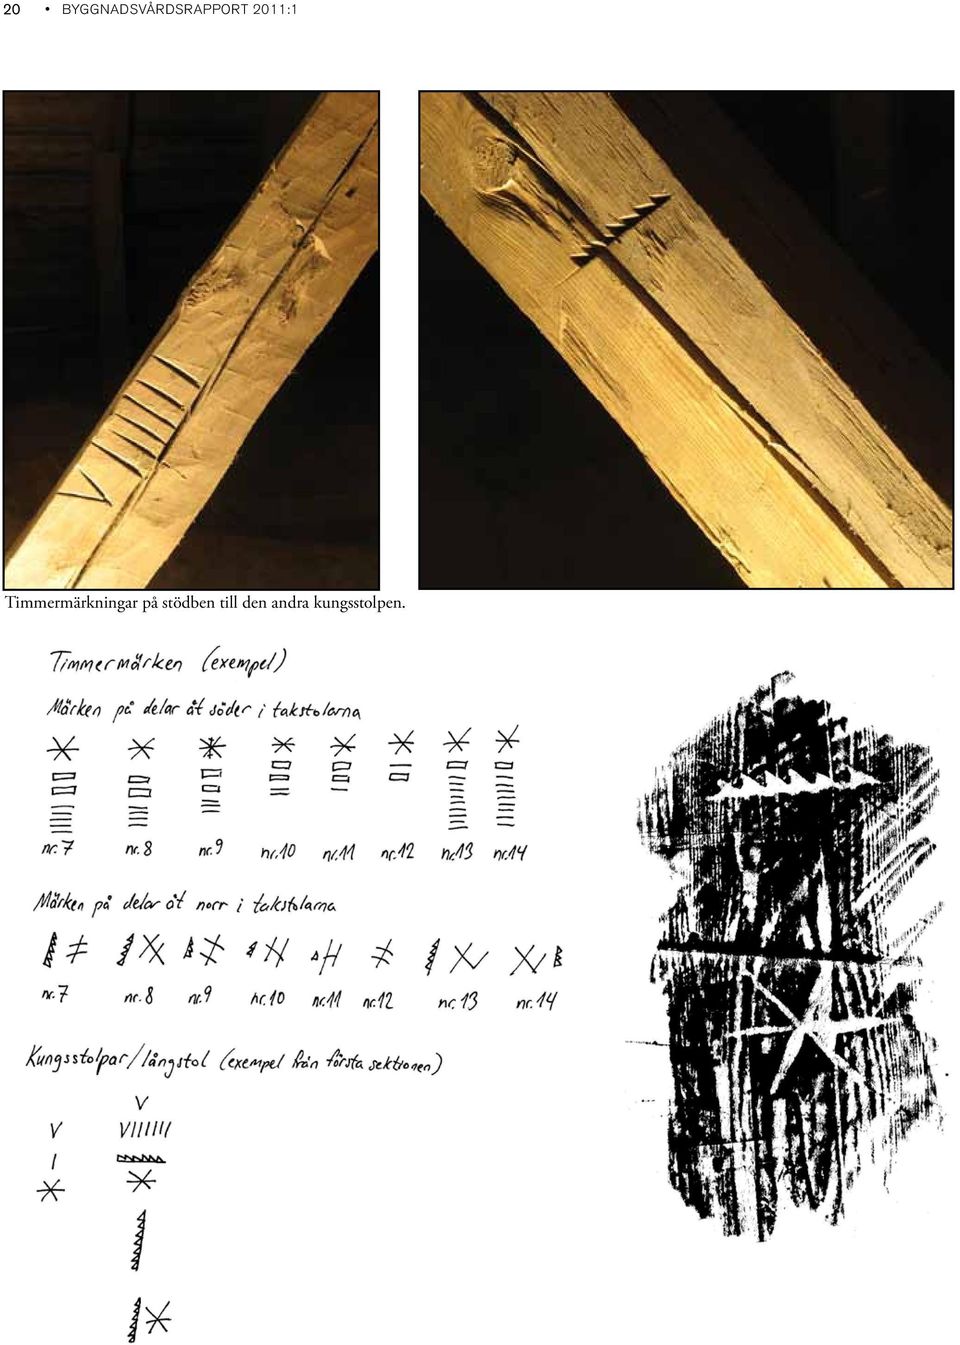 20 • BYGGNADSVÅRDSRAPPORT 2011:1
Timmermärkningar på stödben till den andra kungsstolpen.
Timmermärken (exempel)
Märken på delar åt söder i takstolarna
nr.7 nr.8 nr.9 nr.10 nr.11 nr.12 nr.13 nr.14
Märken på delar åt norr i takstolarna
nr.7 nr.8 nr.9 nr.10 nr.11 nr.12 nr.13 nr.14
Kungsstolpar/långstol (exempel från första sektionen)
V
V VIIIIII
I